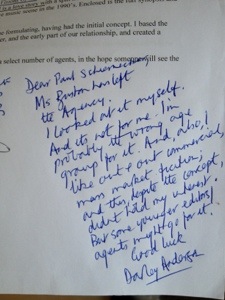 music scene in the 1990's. Enclosed is the full synopsis and
formulating, having had the initial concept. I based the
er, and the early part of our relationship, and created a
select number of agents, in the hope someone will see the
Dear Paul
Ms left
the Agency.
I looked at it myself.
And its not for me. I'm
probably the wrong age
group for it. And, also, I
like out & out commercial,
mass market fiction,
and this, despite the concept,
didn't hold my interest.
But some younger editors/
agents might go for it.
Good luck
Darley Anderson